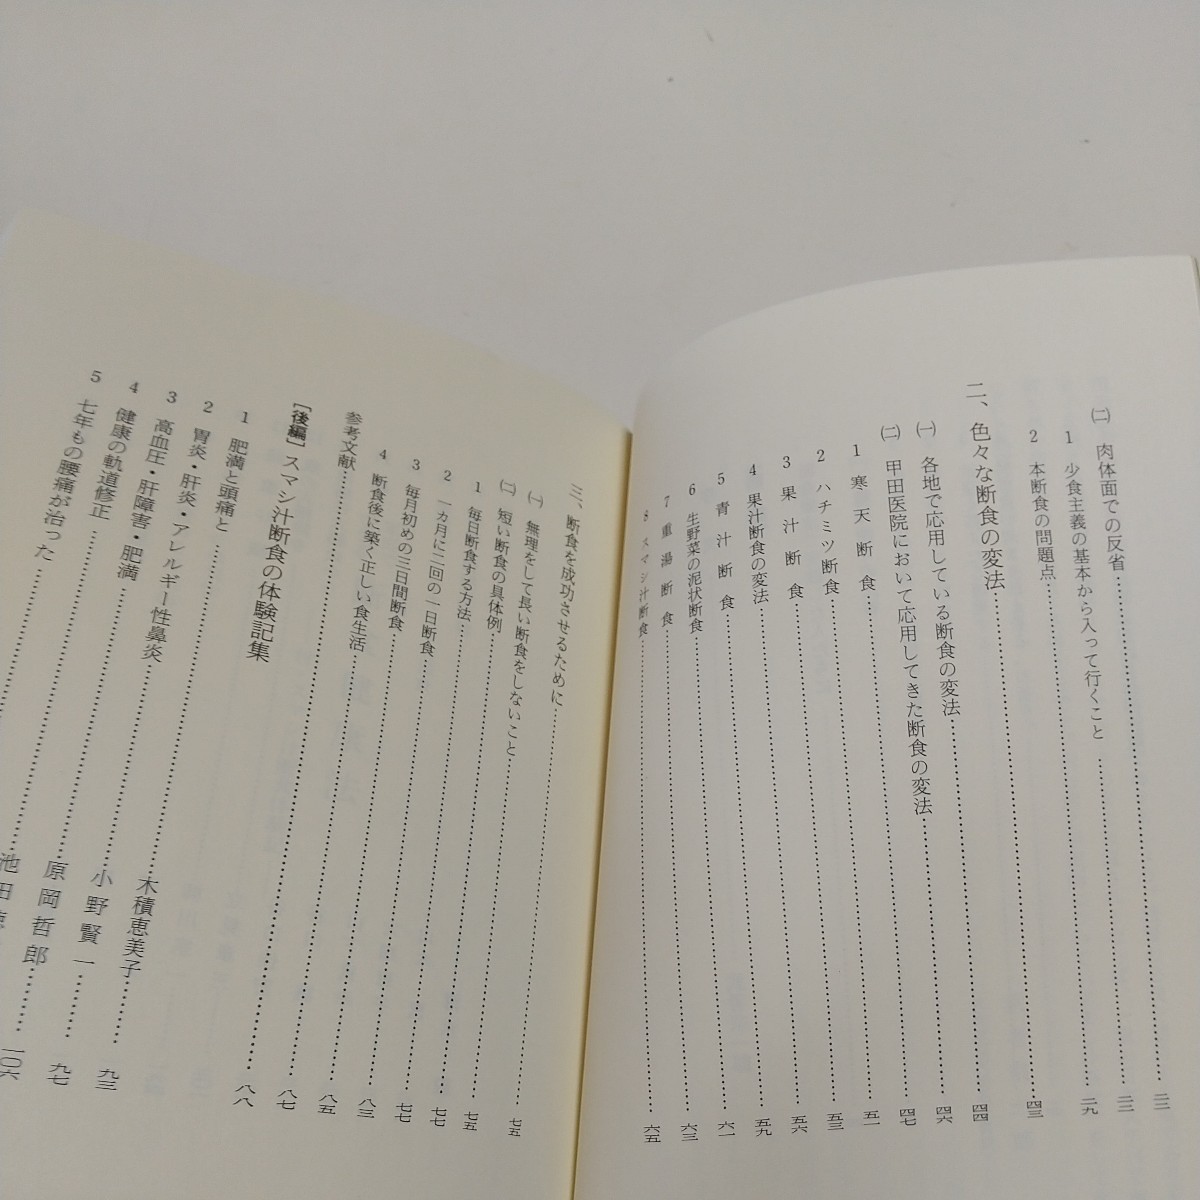 ㈡ 肉体面での反省……二二
1 少食主義の基本から入って行くこと……二二
2 本断食の問題点……二九
二、色々な断食の変法……四三
㈠ 各地で応用している断食の変法……四四
㈡ 甲田医院において応用してきた断食の変法……四六
1 寒天断食……四七
2 ハチミツ断食……五一
3 果汁断食……五三
4 果汁断食の変法……五六
5 青汁断食……五九
6 生野菜の泥状断食……六一
7 重湯断食……六三
8 スマシ汁断食……六五
三、断食を成功させるために……七五
㈠ 無理をして長い断食をしないこと……七五
㈡ 短い断食の具体例……七七
1 毎日断食する方法……七七
2 一カ月に二回の一日断食……八三
3 毎月初めの三日間断食……八五
4 断食後に築く正しい食生活……八七
参考文献……八八
[後編] スマシ汁断食の体験記集
1 肥満と頭痛と……木積恵美子……九三
2 胃炎・肝炎・アレルギー性鼻炎……小野賢一……九七
3 高血圧・肝障害・肥満……原岡哲郎……一〇六
4 健康の軌道修正……池田
5 七年もの腰痛が治った……